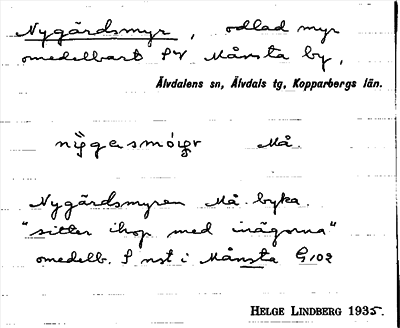 Nygårdsmyr, odlad myr
omedelbart SV Månsta by,
Älvdalens sn, Älvdals tg, Kopparbergs län.
Må.
Nygårdsmyren Må byka.
"sitter ihop med inägorna"
omedelb. S nst i Månsta G102
HELGE LINDBERG 1935.